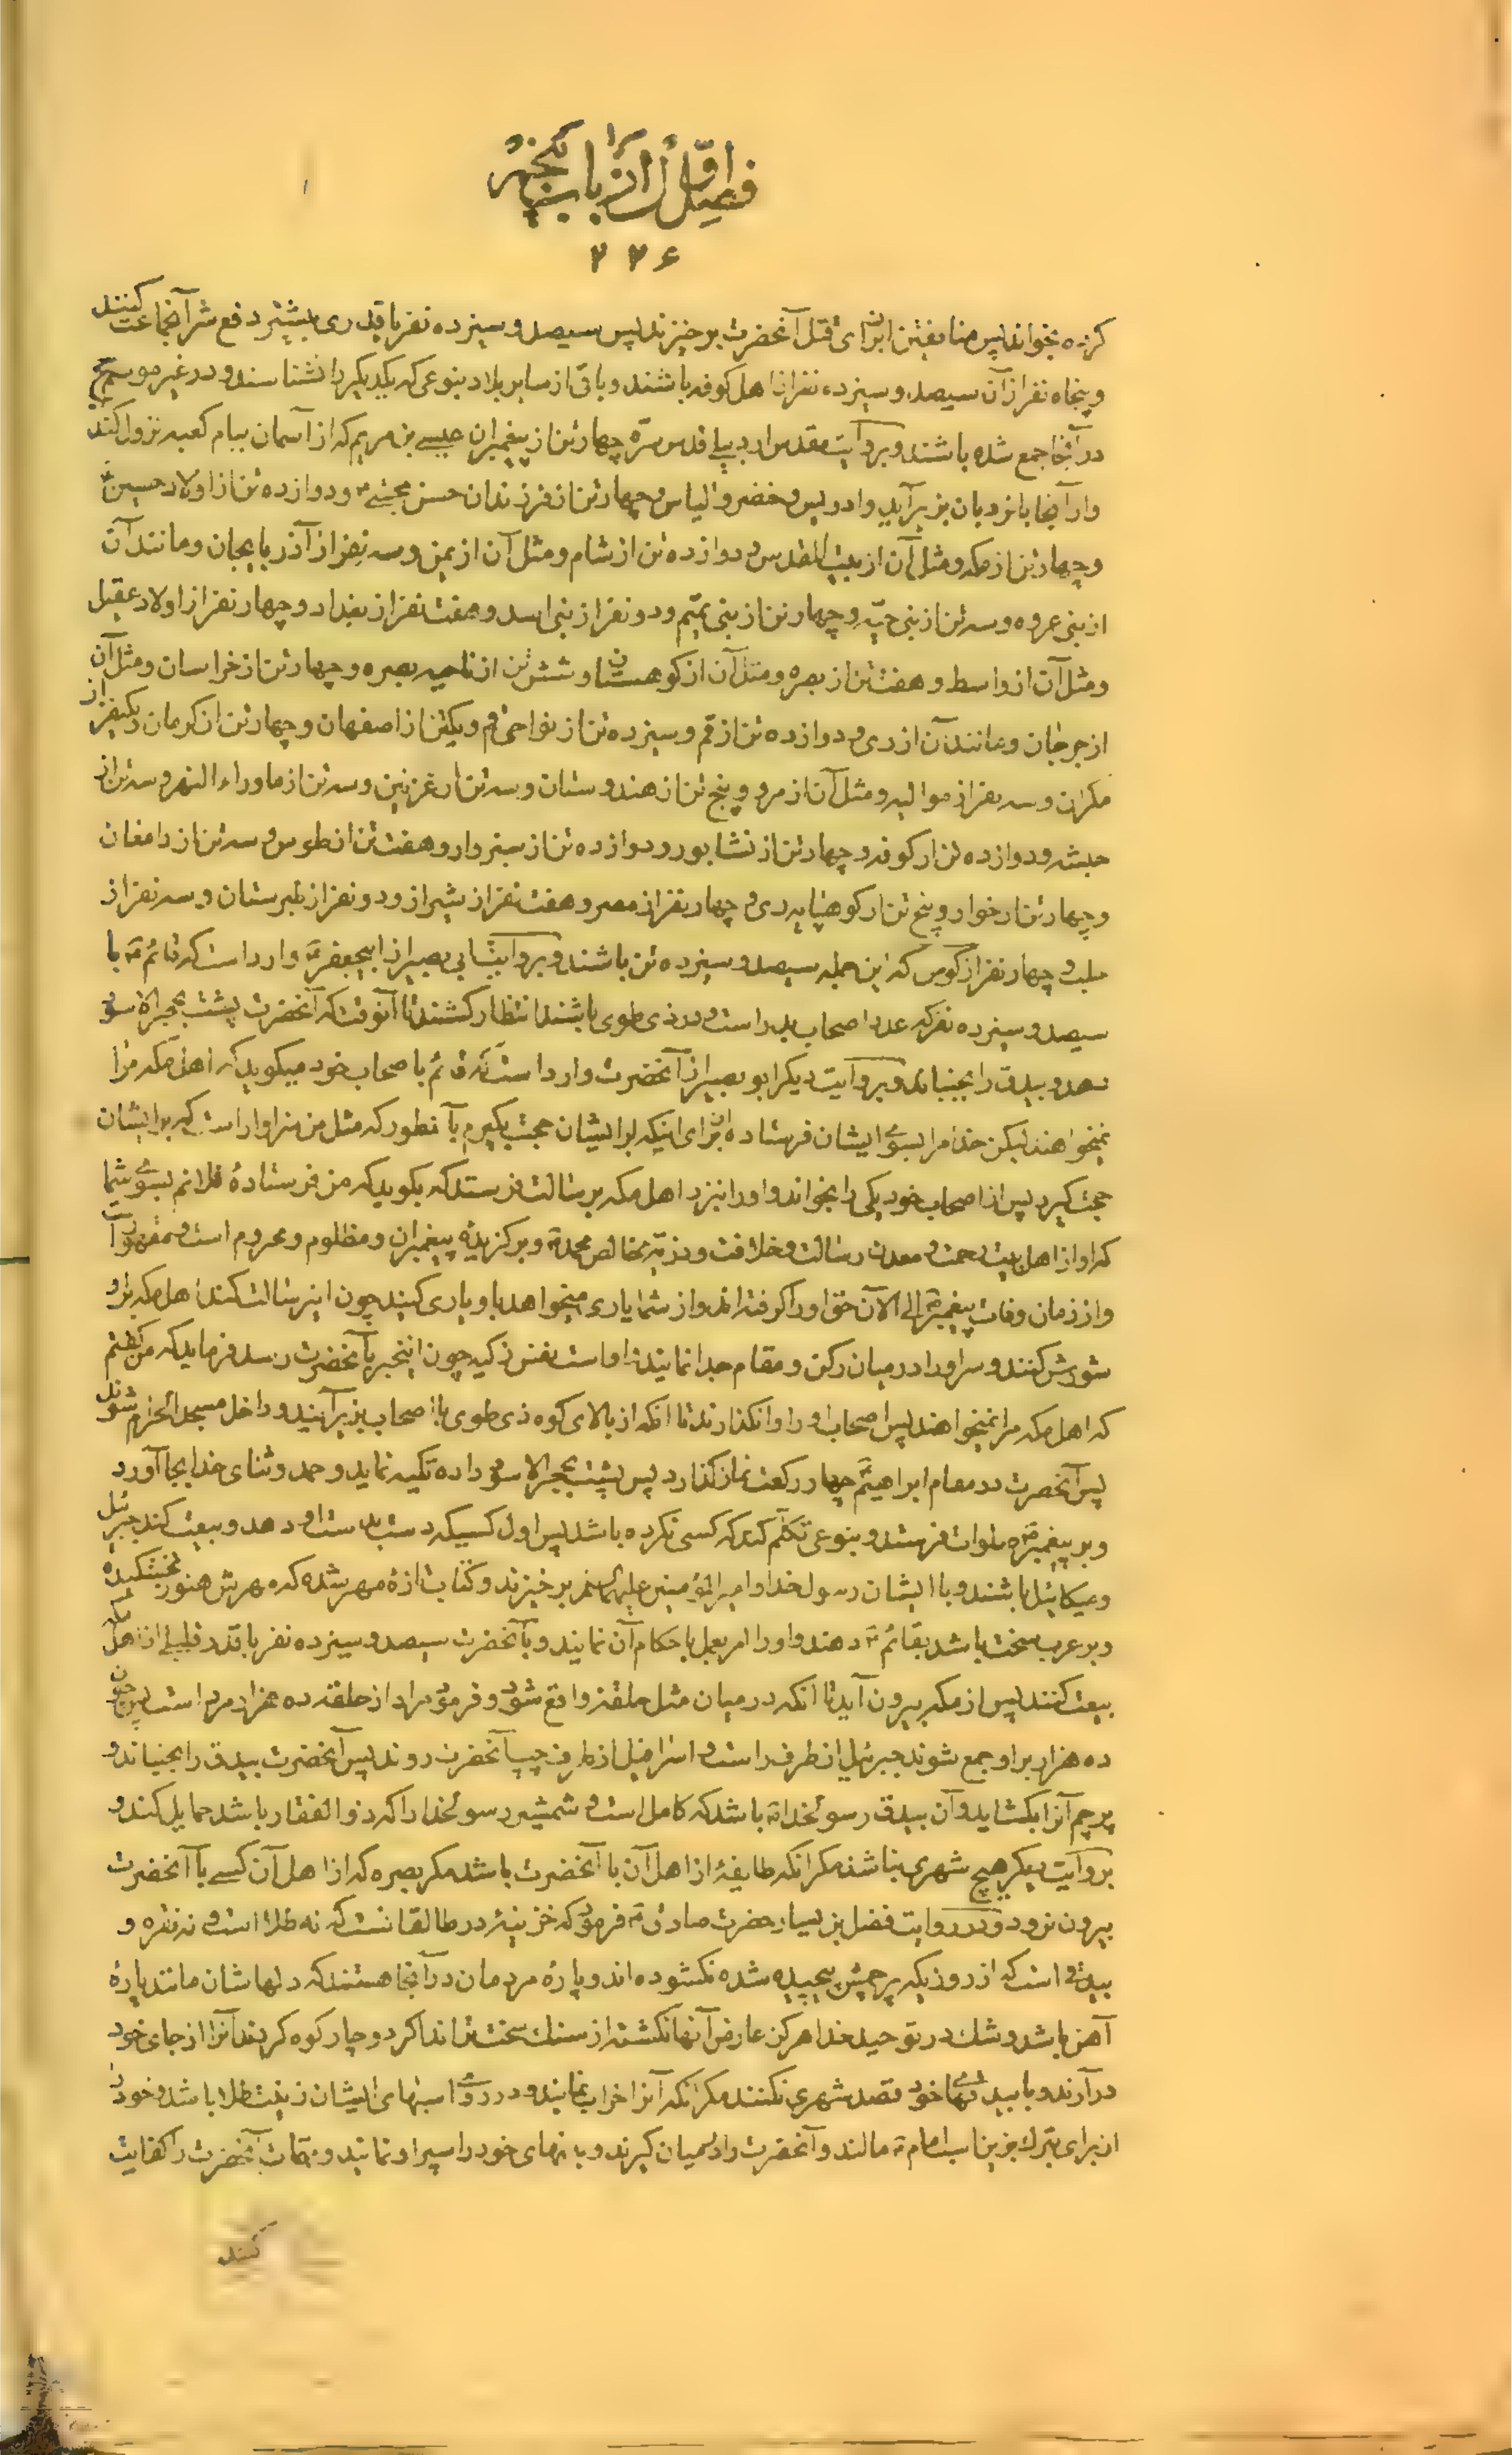 فصل اول از باب پنجم
۲۲۶
کرده بخواند پس منافقین از برای قتل آنحضرت برخیزند پس سیصد و سیزده نفر یا قدری بیشتر دفع شر آنجماعت کنند
و پنجاه نفر از آن سیصد و سیزده نفر از اهل کوفه باشند و باقی از سایر بلاد بنوعی که یکدیکر را نشناسند و در غیر موسم حج
در آنجا جمع شده باشند و بروایت مقدس اردبیلی قدس سره چهار تن از پیغمبران عیسی بن مریم که از آسمان ببام کعبه نزول کند
و از آنجا با نردبان بزیر آید و ادریس و خضر و الیاس و چهار تن از فرزندان حسن مجتبی و دوازده تن از اولاد حسین
و چهار تن از مکه و مثل آن از بیت المقدس و دوازده تن از شام و مثل آن از یمن و سه نفر از آذربایجان و مانند آن
از بنی عروه و سه تن از بنی حیه و چهار تن از بنی تمیم و دو نفر از بنی اسد و هفت نفر از بغداد و چهار نفر از اولاد عقیل
و مثل آن از واسط و هفت تن از بصره و مثل آن از کوهستان و شش تن از ناحیه بصره و چهار تن از خراسان و مثل آن
از جرجان و مانند آن از ری و دوازده تن از قم و سیزده تن از نواحی قم و یکتن از اصفهان و چهار تن از کرمان و یکنفر از
مکران و سه نفر از موالیه و مثل آن از مرو و پنج تن از هندوستان و سه تن از غزنین و سه تن از ماوراء النهر و سه تن از
حبشه و دوازده تن از کوفه و چهار تن از نشابور و دوازده تن از سبزوار و هفت تن از طوس و سه تن از دامغان
و چهار تن از خوار و پنج تن از کوهپایه ری و چهار نفر از مصر و هفت نفر از شیراز و دو نفر از طبرستان و سه نفر از
حلب و چهار نفر از کوس که این جمله سیصد و سیزده تن باشند و بروایت ابی بصیر از ابیجعفر وارد است که قائم با
سیصد و سیزده نفر که عدد اصحاب بدر است در ذی طوی باشند انتظار کشند تا آنوقت که آنحضرت پشت بحجر الاسود
نهد و بیدق را بجنباند و بروایت دیکر ابو بصیر از آنحضرت وارد است که قائم باصحاب خود میکوید که اهل مکه مرا
نمیخواهند لیکن خدا مرا بسوی ایشان فرستاده از برای اینکه بر ایشان حجت بکیرم بآنطور که مثل من سزاوار است که بر ایشان
حجت کیرد پس از اصحاب خود یکی را بخواند و او را نزد اهل مکه برسالت فرستد که بکوید که من فرستادهٔ فلانم بسوی شما
که او از اهل بیت رحمت و معدن رسالت و خلافت و ذریه خالص محمد و برکزیده پیغمبران و مظلوم و محروم است و مقهور
و از زمان وفات پیغمبر الی الآن حق او را کرفته اند و از شما یاری میخواهد باو یاری کنید چون این رسالت کند اهل مکه بر او
شورش کنند و سر او را در میان رکن و مقام جدا نمایند او است نفس زکیه چون اینخبر بآنحضرت رسد فرماید که من نکفتم
که اهل مکه مرا نمیخواهند پس اصحاب او را وانکذارند تا آنکه از بالای کوه ذی طوی با اصحاب بزیر آیند و داخل مسجد الحرام شوند
پس آنحضرت در مقام ابراهیم چهار رکعت نماز کذارد پس پشت بحجر الاسود داده تکیه نماید و حمد و ثنای خدا بجا آورد
و بر پیغمبر صلوات فرستد و بنوعی تکلم کند که کسی نکرده باشد پس اول کسیکه دست بدست او دهد و بیعت کند جبرئیل
و میکائیل باشند و با ایشان رسول خدا و امیر المؤمنین علیهما السلام برخیزند و کتاب تازهٔ مهر شده که مهرش هنوز نخشکیده
و بر عرب سخت باشد بقائم دهند و او را امر بعمل باحکام آن نمایند و بآنحضرت سیصد و سیزده نفر با قدر قلیلی از اهل مکه
بیعت کنند پس از مکه بیرون آید تا آنکه در میان مثل حلقه واقع شود و فرمود مراد از حلقه ده هزار مرد است پس چون
ده هزار بر او جمع شوند جبرئیل از طرف راست و اسرافیل از طرف چپ آنحضرت روند پس آنحضرت بیدق را بجنباند و
پرچم آنرا بکشاید و آن بیدق رسولخدا باشد که کامل است و شمشیر رسولخدا را که ذوالفقار باشد حمایل کند و
بروایت دیکر هیچ شهری نباشد مکر آنکه طایفهٔ از اهل آن با آنحضرت باشد مکر بصره که از اهل آن کسی با آنحضرت
بیرون نرود و در روایت فضل بن یسار حضرت صادق فرمود که خزینهٔ در طالقانست که نه طلا است و نه نقره و
بیدقی است که از روزیکه پرچمش پیچیده شده نکشوده اند و پارهٔ مردمان در آنجا هستند که دلهاشان مانند پارهٔ
آهن باشد و شک در توحید خدا هرکز عارض آنها نکشته از سنک سخت تراند اکر دوچار کوه کردند آنرا از جای خود
درآرند و با بیدقهای خود قصد شهری نکنند مکر آنکه آنرا خراب نمایند و در روی اسبهای ایشان زینت طلا باشد و خود را
از برای تبرک بزین اسب امام مالند و آنحضرت را در میان کیرند و بدنهای خود را سپر او نمایند و مهمات آنحضرت را کفایت
کنند